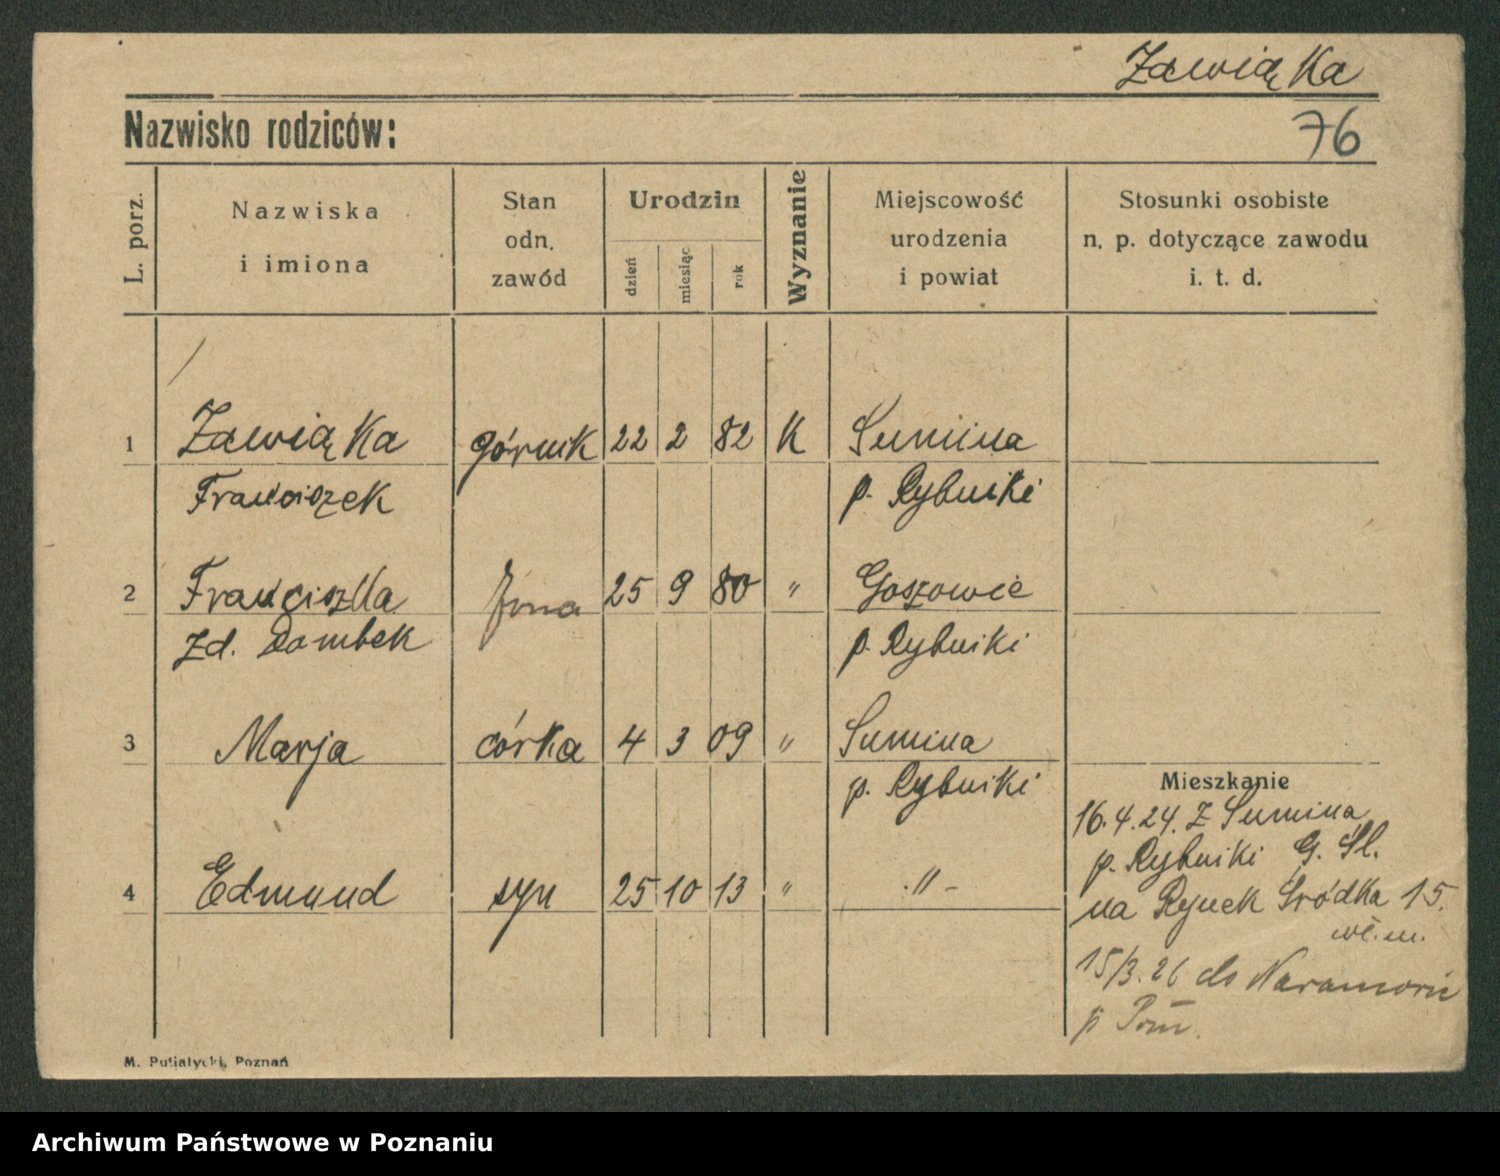 Zawiąka
Nazwisko rodziców:
76
L. porz.
Nazwiska
i imiona
Stan
odn.
zawód
Urodzin
dzień
miesiąc
rok
Wyznanie
Miejscowość
urodzenia
i powiat
Stosunki osobiste
n. p. dotyczące zawodu
i. t. d.
1 Zawiąka górnik 22 2 82 K Sumina
Franciszek p. Rybniki
2 Franciszka żona 25 9 80 " Goszowie
zd. Dombek p. Rybniki
3 Marja córka 4 3 09 " Sumina
p. Rybniki
4 Edmund syn 25 10 13 " -"-
Mieszkanie
16.4.24. z Sumina
p. Rybniki G. Śl.
na Rynek Śródka 15.
wł. m.
15/3.26 do Naramowic
p Pozn.
M. Putiatycki, Poznań
Archiwum Państwowe w Poznaniu